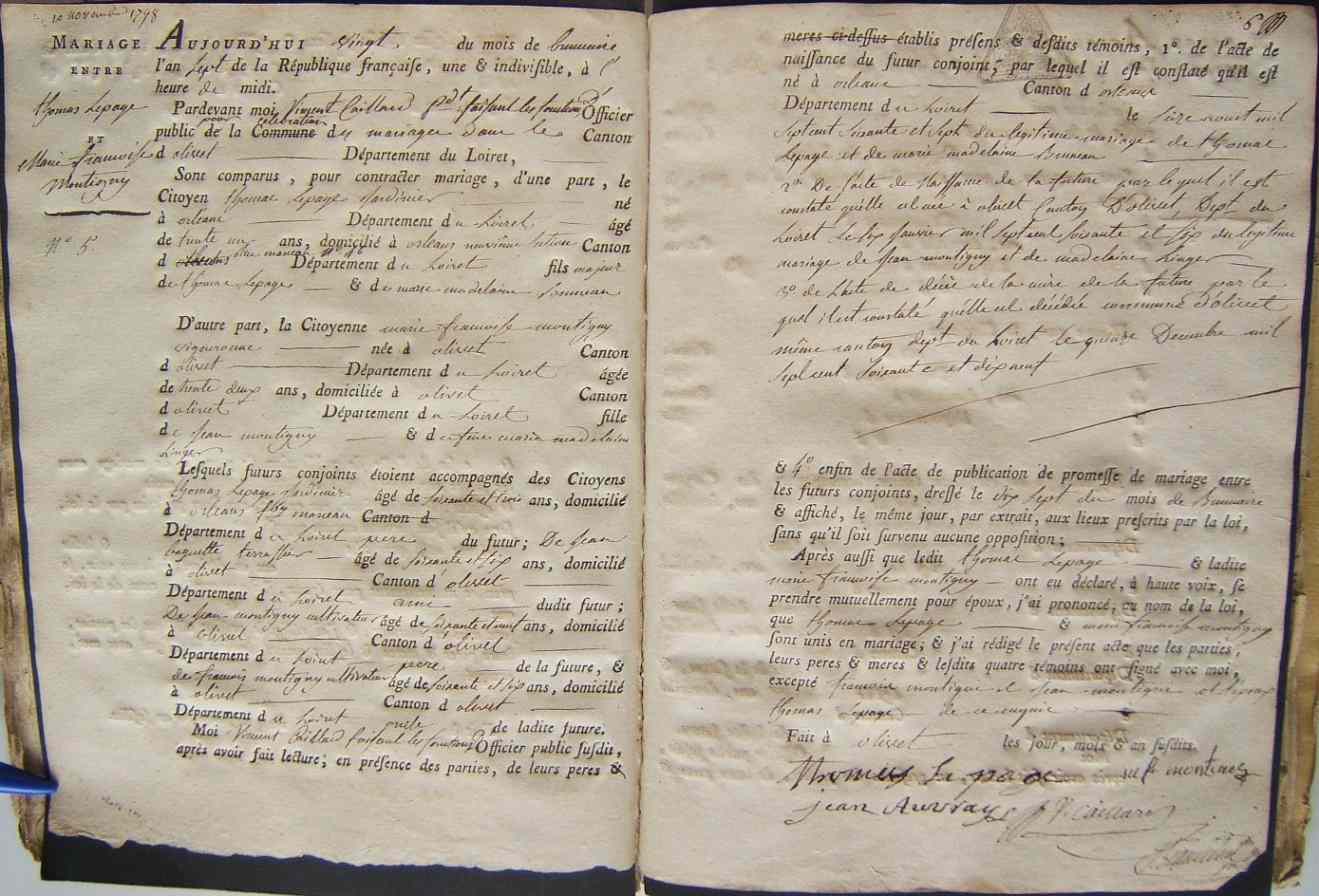 10 novembre 1798
MARIAGE
ENTRE
thomas Lepage
ET
Marie francoise
Montigny
N.º 5.
AUJOURD'HUI vingt du mois de brumaire
l'an sept de la République françaiſe, une & indiviſible, à l'
heure de midi.
Pardevant moi Vincent Caillard pdt faiſant les fonctions d' Officier
public de la Commune pour célébration des mariages dans le Canton
d olivet Département du Loiret,
Sont comparus, pour contracter mariage, d'une part, le
Citoyen thomas Lepage Jardinier né
à orleans Département du Loiret âgé
de trente un ans, domicilié à orleans neuvieme Section Canton
d orleans Département du Loiret fils majeur
de thomas Lepage & de marie madelaine bonneau
D'autre part, la Citoyenne marie francoise montigny
vigneronne née à olivet Canton
d olivet Département du Loiret âgée
de trente deux ans, domiciliée à olivet Canton
d olivet Département du Loiret fille
de Jean montigny & de feue marie madelaine
Linger
Leſquels futurs conjoints étoient accompagnés des Citoyens
thomas Lepage Jardinier âgé de soixante et trois ans, domicilié
à orleans moreau Canton d
Département du Loiret pere du futur; De Jean
terrassier âgé de soixante et six ans, domicilié
à olivet Canton d'olivet
Département du Loiret ami dudit futur;
De Jean montigny cultivateur âgé de ans, domicilié
à olivet Canton d'olivet
Département du Loiret pere de la future, &
de francois montigny cultivateur âgé de soixante et six ans, domicilié
à olivet Canton d olivet
Département du Loiret oncle de ladite future.
Moi Vincent Caillard faiſant les fonctions d'Officier public ſuſdit,
après avoir fait lecture; en préſence des parties, de leurs peres &
6
meres ci-deſſus établis préſens & deſdits témoins, 1°. de l'acte de
naiſſance du futur conjoint, par lequel il eſt conſtaté qu'il eſt
né à orleans Canton d orleans
Département du Loiret le seize aoust mil
sept cent soixante et sept du legitime mariage de thomas
Lepage et de marie madelaine Bonneau
2º. De l'acte de Naissance de la future par lequel il est
constaté qu'elle est née à olivet Canton D'olivet, Dept. du
Loiret le six Janvier mil sept cent soixante et six du legitime
mariage de Jean montigny et de madelaine Linger
3º. de l'acte de décès de la mere de la future par le
quel il est constaté qu'elle est décédée commune d'olivet
même canton dept. du Loiret le quinze Decembre mil
sept cent soixante et dix neuf
& 4º enfin de l'acte de publication de promeſſe de mariage entre
les futurs conjoints, dreſſé le dix sept du mois de Brumaire
& affiché, le même jour, par extrait, aux lieux preſcrits par la loi,
ſans qu'il ſoit ſurvenu aucune oppoſition;
Après auſſi que ledit thomas Lepage & ladite
marie francoise montigny ont eu déclaré, à haute voix, ſe
prendre mutuellement pour époux, j'ai prononcé, au nom de la loi,
que thomas Lepage & marie francoise montigny
ſont unis en mariage; & j'ai rédigé le préſent acte que les parties,
leurs peres & meres & leſdits quatre témoins ont ſigné avec moi,
excepté francois montigny et Jean montigny et
thomas Lepage de ce enquis
Fait à olivet les jour, mois & an ſuſdits.
thomas Le page m f montigny
jean Auvray V. Caillard